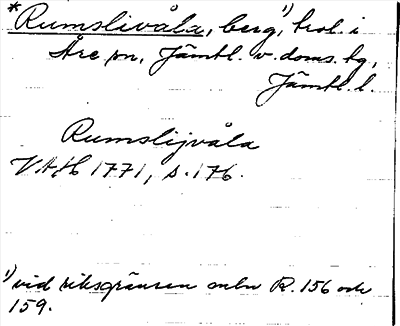 *Rumslivåla, berg,¹) trol. i
Åre sn, Jämtl. v. doms. tg,
Jämtl. l.
Rumslijvåla
VAH 1771, s. 176.
¹) vid riksgränsen mln R. 156 och
159.